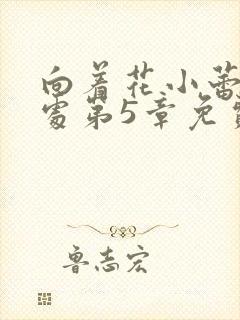 向着花小蕾
处第5章免费
鲁志宏